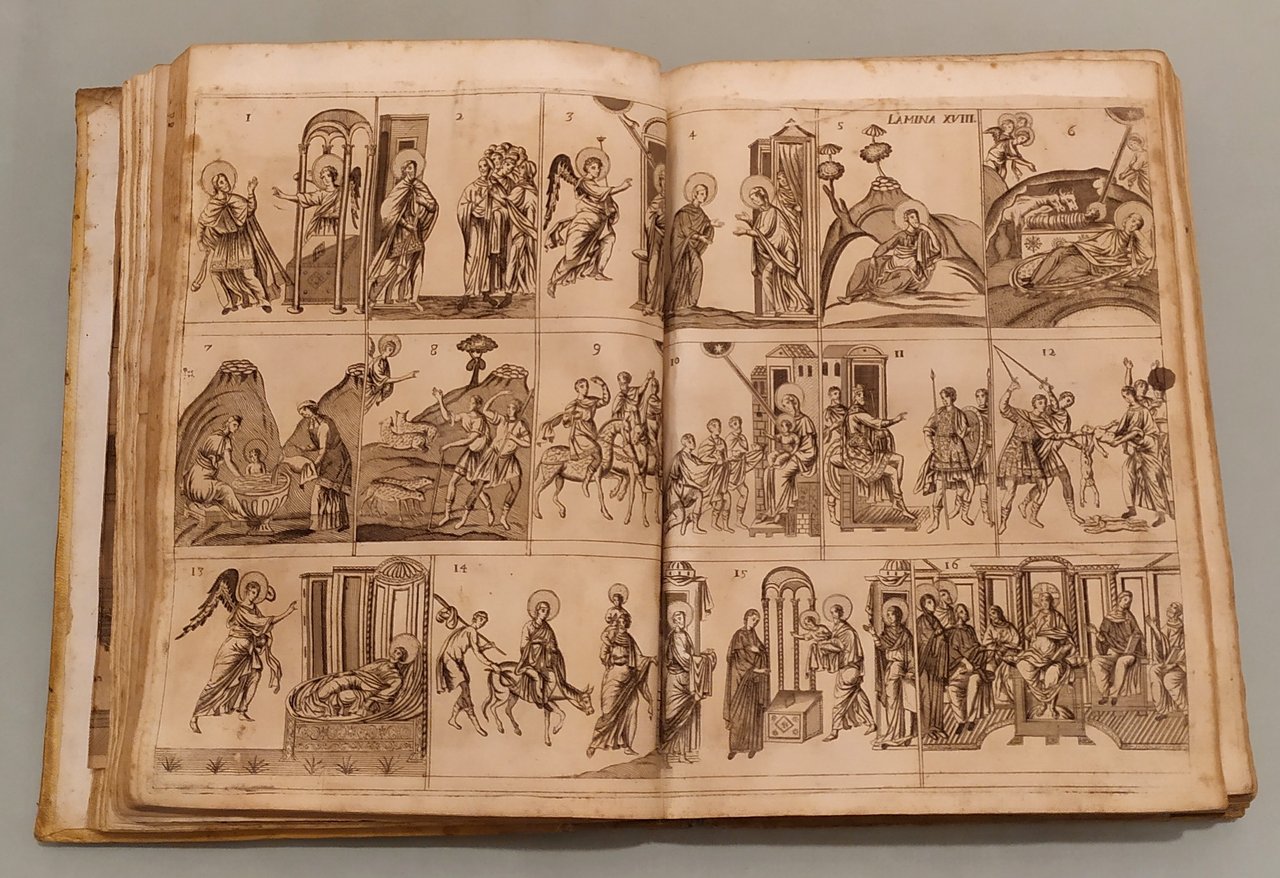 1 2 3 4 5 LAMINA XVIII. 6
7 8 9 10 11 12
13 14 15 16